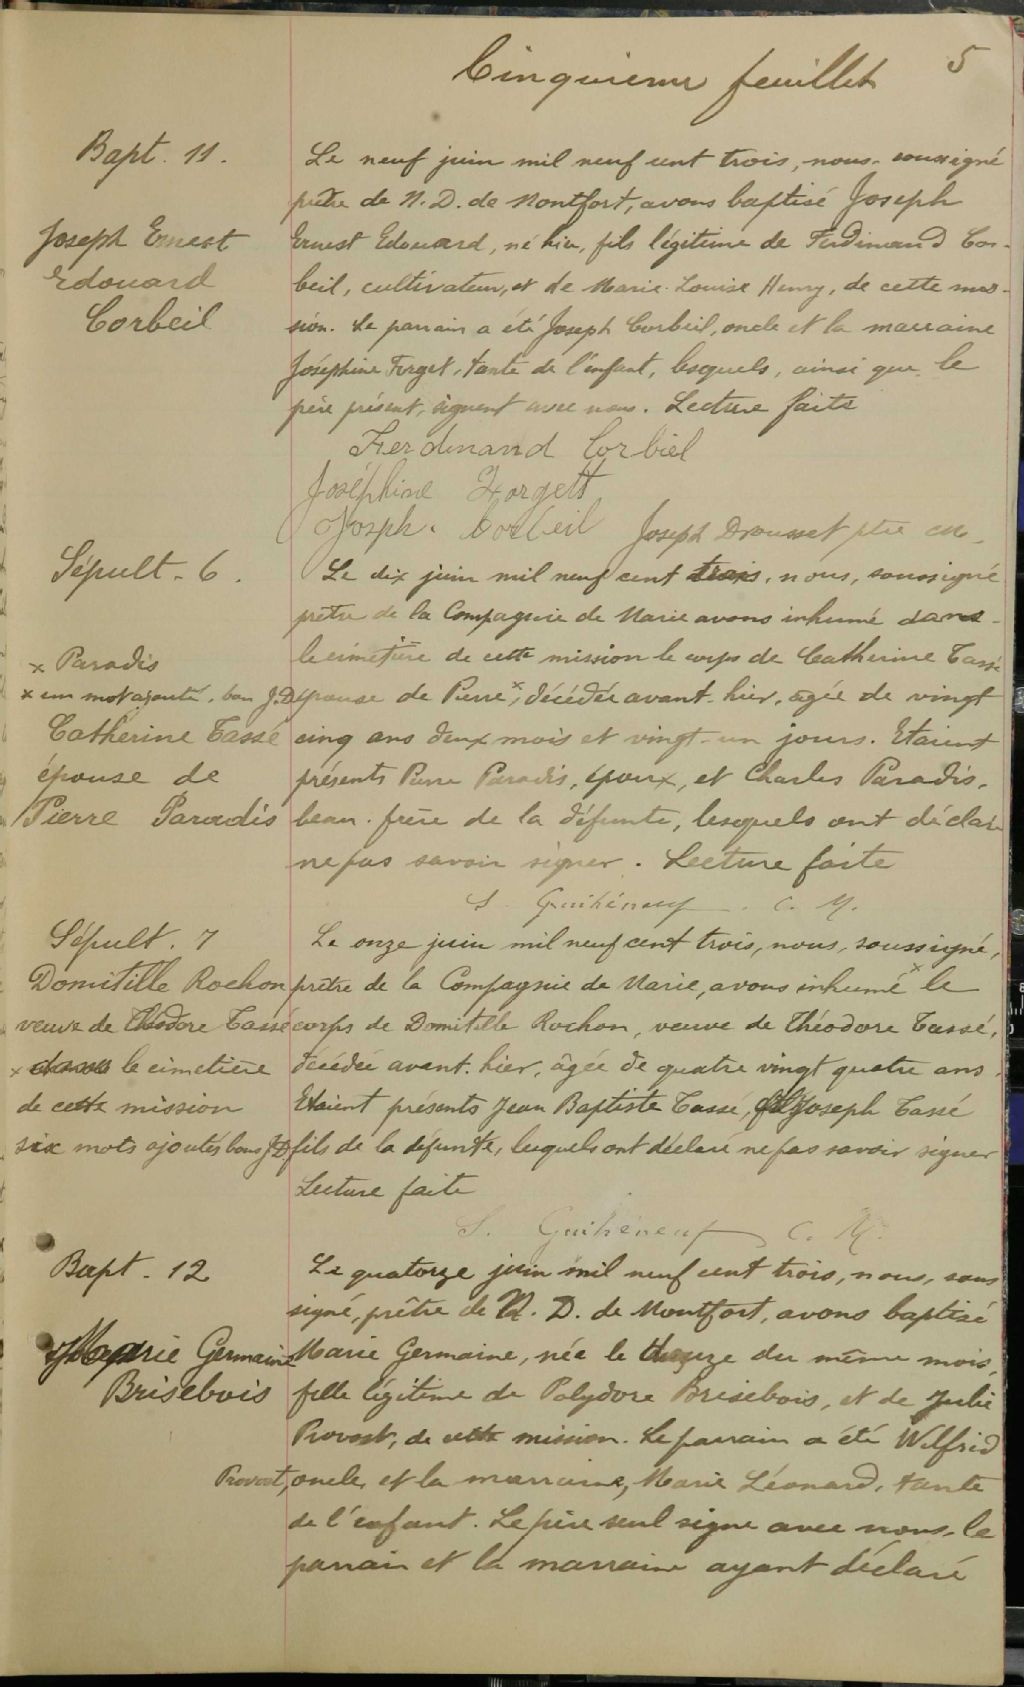 Cinquieme feuillet 5
Bapt. 11.
Joseph Ernest
Edouard
Corbeil
Le neuf juin mil neuf cent trois, nous soussigné
prêtre de N. D. de Montfort, avons baptisé Joseph
Ernest Edouard, né hier, fils légitime de Ferdinand Cor-
beil, cultivateur, et de Marie Louise Henry, de cette mis-
sion. Le parrain a été Joseph Corbeil, oncle et la marraine
Joséphine Forget, tante de l'enfant, lesquels, ainsi que le
père présent, signent avec nous. Lecture faite
Ferdinand Corbiel
Joséphine Forgett
Josph. Corbeil Joseph Drousset ptre
Sépult. 6.
x Paradis
x un mot ajouté, bon J.D
Catherine Tassé
épouse de
Pierre Paradis
Le dix juin mil neuf cent trois, nous, soussigné
prêtre de la Compagnie de Marie avons inhumé dans
le cimetière de cette mission le corps de Catherine Tassé
épouse de Pierre x, décédée avant-hier, agée de vingt
cinq ans deux mois et vingt-un jours. Etaient
présents Pierre Paradis, époux, et Charles Paradis,
beau-frère de la défunte, lesquels ont déclaré
ne pas savoir signer. Lecture faite
S. Guihéneuf. C. M.
Sépult. 7
Domitille Rochon
veuve de Théodore Tassé
x dans le cimetière
de cette mission
six mots ajoutés bons J.D
Le onze juin mil neuf cent trois, nous, soussigné,
prêtre de la Compagnie de Marie, avons inhumé x le
corps de Domitille Rochon, veuve de Théodore Tassé,
décédée avant-hier, âgée de quatre vingt quatre ans.
Etaient présents Jean Baptiste Tassé, Joseph Tassé
fils de la défunte, lesquels ont déclaré ne pas savoir signer
Lecture faite
S. Guihéneuf C. M.
Bapt. 12
Marie Germaine
Brisebois
Le quatorze juin mil neuf cent trois, nous, sous
signé, prêtre de N. D. de Montfort, avons baptisé
Marie Germaine, née le du même mois,
fille légitime de Polydore Brisebois, et de Julie
Provost, de cette mission. Le parrain a été Wilfrid
Provost, oncle, et la marraine, Marie Léonard, tante
de l'enfant. Le père seul signe avec nous, le
parrain et la marraine ayant déclaré